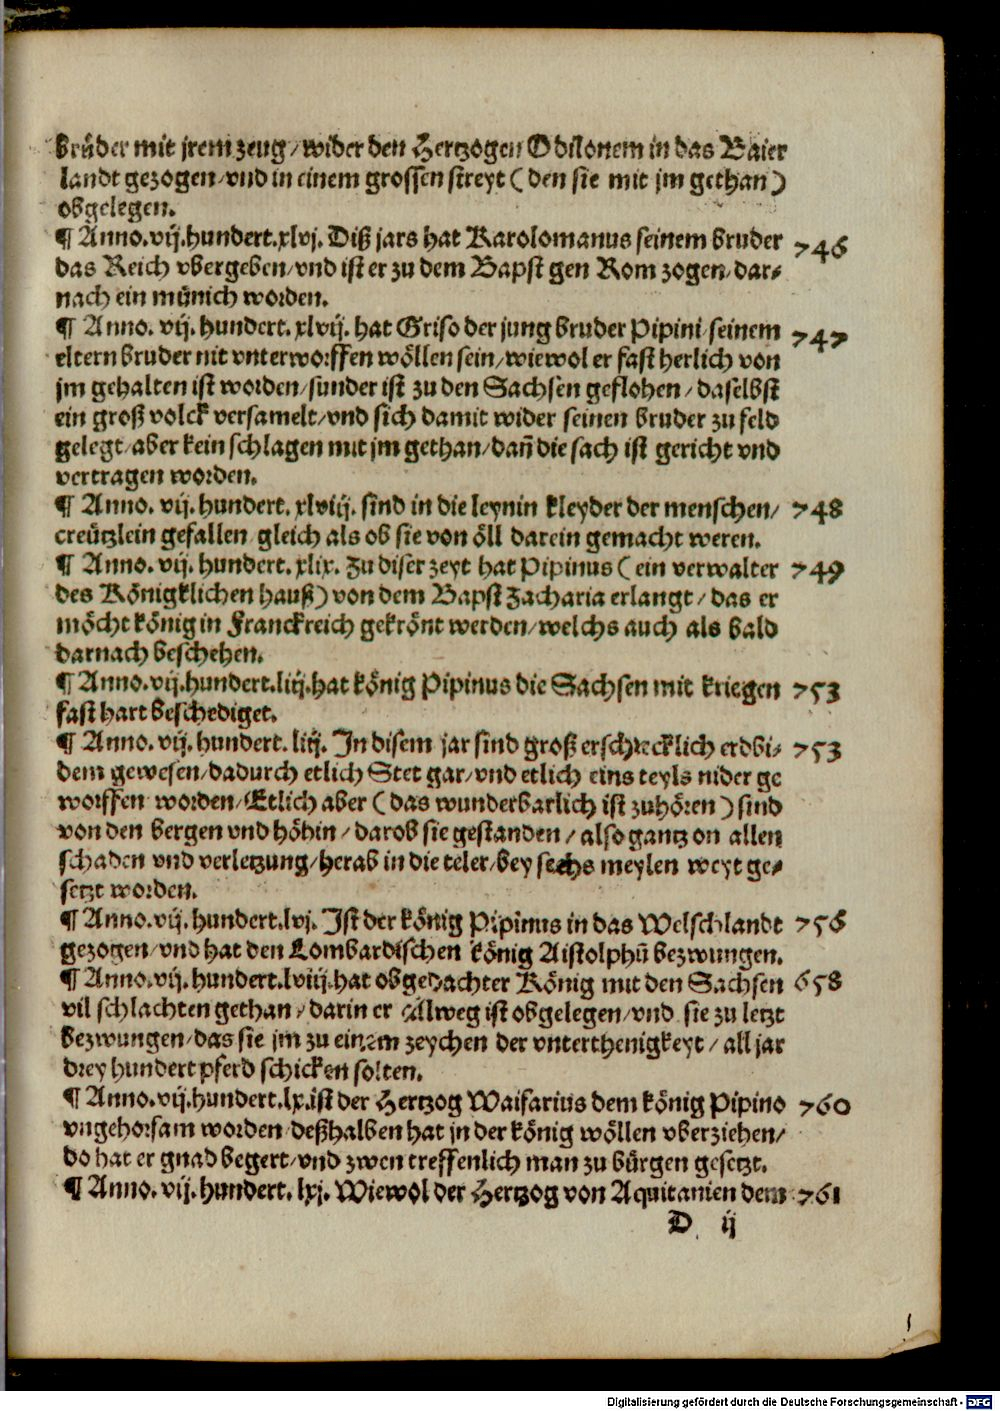 brüder mit jrem zeug/wider den Hertzogen Odilonem in das Baier
landt gezogen/vnd in einem grossen streyt (den sie mit jm gethan)
obgelegen.
¶ Anno.vij.hundert.xlvj. Diß jars hat Karolomanus seinem bruder 746
das Reich vbergeben/vnd ist er zu dem Bapst gen Rom zogen/dar⸗
nach ein münich worden.
¶ Anno. vij. hundert. xlvij. hat Griso der jung bruder Pipini/seinem 747
eltern bruder nit vnterworffen wöllen sein/wiewol er fast herlich von
jm gehalten ist worden/sunder ist zu den Sachsen geflohen/daselbst
ein groß volck versamelt/vnd sich damit wider seinen bruder zu feld
gelegt/aber kein schlagen mit jm gethan/dañ die sach ist gericht vnd
vertragen worden.
¶ Anno. vij. hundert. xlviij. sind in die leynin kleyder der menschen/ 748
creützlein gefallen/gleich als ob sie von öll darein gemacht weren.
¶ Anno. vij. hundert. xlix. Zu diser zeyt hat Pipinus (ein verwalter 749
des Königklichen hauß) von dem Bapst Zacharia erlangt/das er
möcht könig in Franckreich gekrönt werden/welchs auch als bald
darnach beschehen.
¶ Anno.vij.hundert.liij.hat könig Pipinus die Sachsen mit kriegen 753
fast hart beschediget.
¶ Anno. vij. hundert. liij. In disem jar sind groß erschrecklich erdbi⸗ 753
dem gewesen/dadurch etlich Stet gar/vnd etlich eins teyls nider ge
worffen worden/Etlich aber (das wunderbarlich ist zuhören) sind
von den bergen vnd höhin/darob sie gestanden/also gantz on allen
schaden vnd verletzung/herab in die teler/bey sechs meylen weyt ge⸗
setzt worden.
¶ Anno.vij.hundert.lvj. Ist der könig Pipinus in das Welschlandt 756
gezogen/vnd hat den Lombardischen könig Aistolphū bezwungen.
¶ Anno.vij.hundert.lviij.hat obgedachter König mit den Sachsen 658
vil schlachten gethan/darin er allweg ist obgelegen/vnd sie zu letzt
bezwungen/das sie jm zu einem zeychen der vnterthenigkeyt/all jar
drey hundert pferd schicken solten.
¶ Anno.vij.hundert.lx.ist der Hertzog Waifarius dem könig Pipino 760
vngehorsam worden/deßhalben hat jn der könig wöllen vberziehen/
do hat er gnad begert/vnd zwen treffenlich man zu bürgen gesetzt.
¶ Anno. vij. hundert. lxj. Wiewol der Hertzog von Aquitanien dem 761
D ij
Digitalisierung gefördert durch die Deutsche Forschungsgemeinschaft - DFG